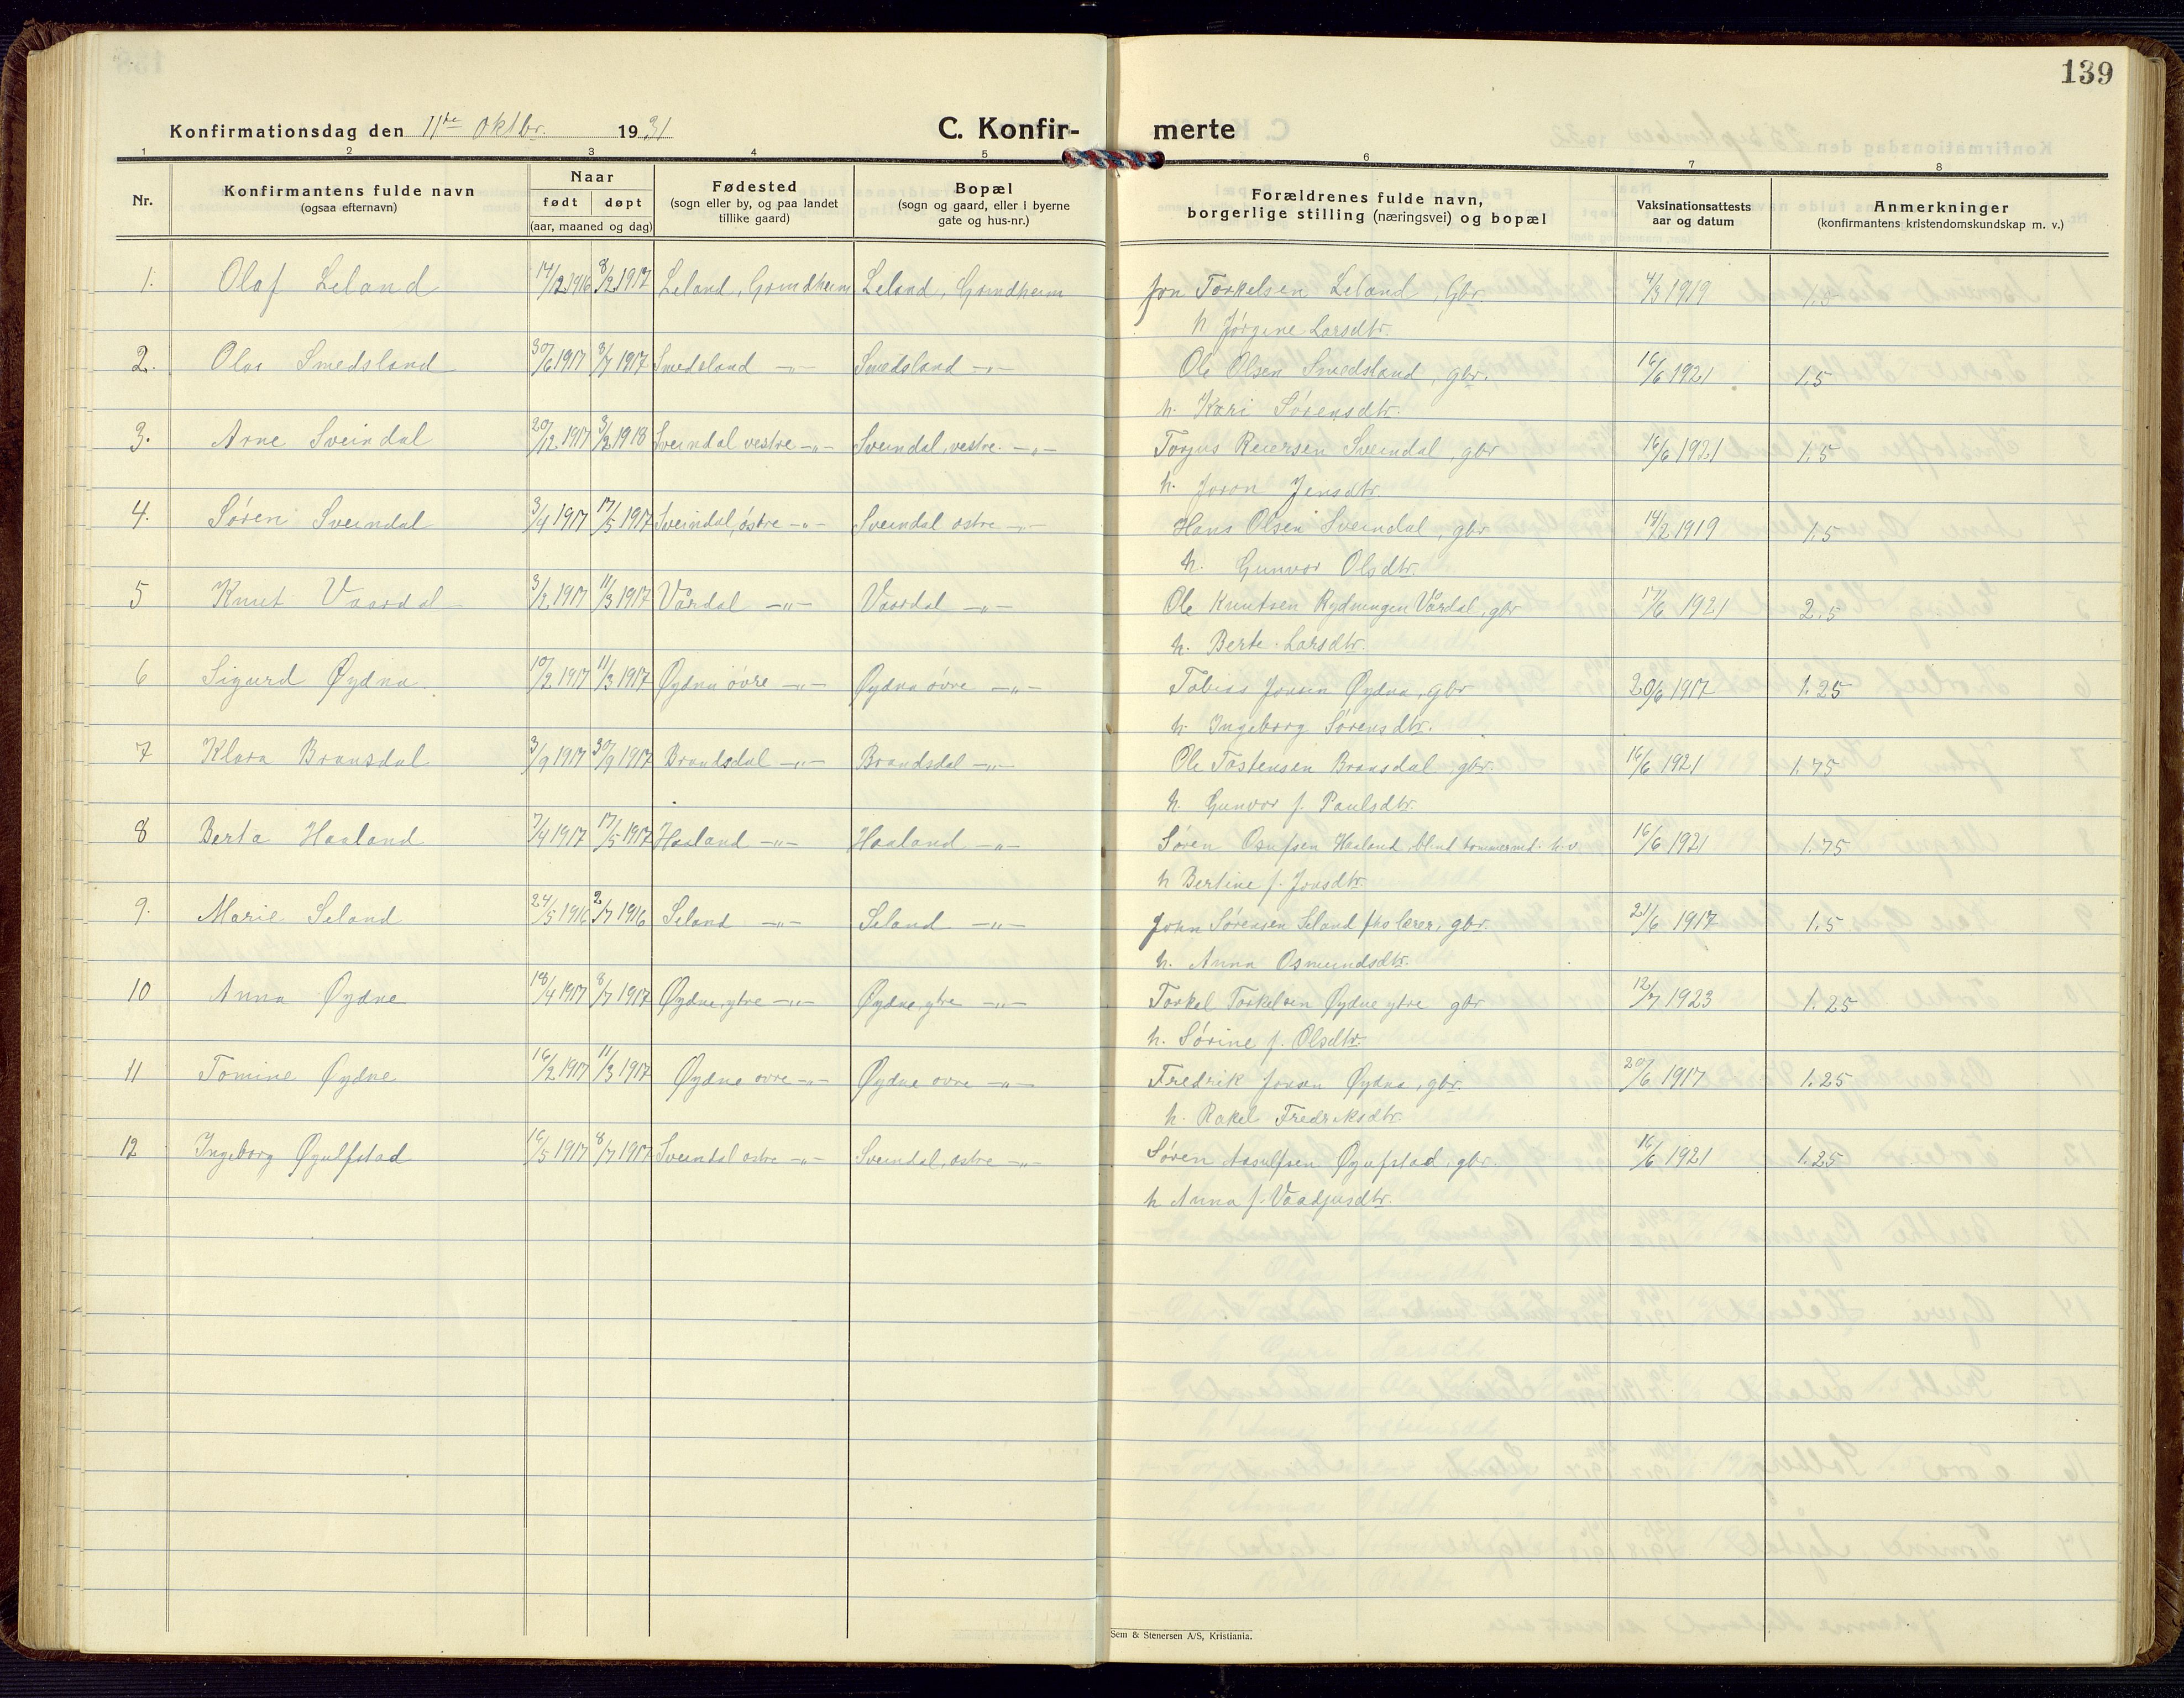 139
Konfirmationsdag den 11te oktbr. 1931 C. Konfir- merte
1 2 3 4 5 6 7 8
Nr. Konfirmantens fulde navn (ogsaa efternavn) Naar født døpt (aar, maaned og dag) Fødested (sogn eller by, og paa landet tillike gaard) Bopæl (sogn og gaard, eller i byerne gate og hus-nr.) Forældrenes fulde navn, borgerlige stilling (næringsvei) og bopæl Vaksinationsattests aar og datum Anmerkninger (konfirmantens kristendomskundskap m. v.)
1. Olaf Leland 14/12 1916 8/2 1917 Leland, Grindheim Leland, Grindheim Jon Torkelsen Leland, Gbr. 4/3 1919 1.5
h Jørgine Larsdtr.
2. Olav Smedsland 30/6 1917 8/7 1917 Smedsland -"- Smedsland -"- Ole Olsen Smedsland, gbr. 16/6 1921 1.5
h. Kari Sørensdtr.
3. Arne Sveindal 20/12 1917 3/2 1918 Sveindal vestre -"- Sveindal, vestre. -"- Torjus Reiersen Sveindal, gbr 16/6 1921 1.5
h. Joron Jensdtr.
4. Søren Sveindal 3/4 1917 17/5 1917 Sveindal, østre -"- Sveindal østre -"- Hans Olsen Sveindal, gbr 14/2 1919 1.5
h. Gunvor Olsdtr.
5 Knut Vaardal 3/2 1917 11/3 1917 Vårdal -"- Vaardal -"- Ole Knutsen Rydningen Vårdal, gbr 17/6 1921 2.5
h. Berte Larsdtr.
6 Sigurd Øydna 10/2 1917 11/3 1917 Øydna øvre -"- Øydna øvre -"- Tobias Jonsen Øydna, gbr 20/6 1917 1.25
h. Ingeborg Sørensdtr.
7 Klara Bransdal 3/9 1917 30/9 1917 Brandsdal -"- Brandsdal -"- Ole Tostensen Bransdal gbr. 16/6 1921 1.75
h. Gunvor f. Paulsdtr.
8 Berta Haaland 7/4 1917 17/5 1917 Haaland -"- Haaland -"- Søren Osufsen Haaland, blind tømmermd. h.v. 16/6 1921 1.75
h Bertine f. Jonsdtr.
9. Marie Seland 24/5 1916 2/7 1916 Seland -"- Seland -"- John Sørensen Seland fhv lærer, gbr. 21/6 1917 1.5
h. Anna Osmundsdtr.
10 Anna Øydne 18/4 1917 8/7 1917 Øydne, ytre -"- Øydne, ytre -"- Torkel Torkelsen Øydne ytre gbr 12/7 1923 1.25
h. Sørine f. Olsdtr.
11 Tomine Øydne 16/2 1917 11/3 1917 Øydna øvre -"- Øydna øvre -"- Fredrik Jonsen Øydna, gbr. 20/6 1917 1.25
h. Rakel Fredriksdtr.
12 Ingeborg Øgulfstad 16/5 1917 8/7 1917 Sveindal østre -"- Sveindal, østre -"- Søren Aasulfsen Øgufstad, gbr. 16/6 1921 1.25
h Anna f.
Sem & Stenersen A/S, Kristiania.